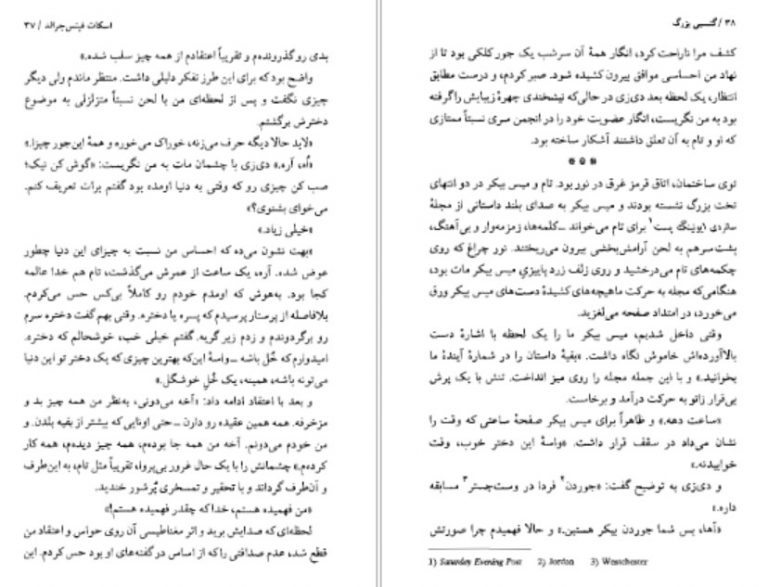 اسکات فیتس‌جرالد / ۳۷
بدی رو گذرونده‌م و تقریباً اعتقادم از همه چیز سلب شده.»
واضح بود که برای این طرز تفکر دلیلی داشت. منتظر ماندم ولی دیگر
چیزی نگفت و پس از لحظه‌ای من با لحن نسبتاً متزلزلی به موضوع
دخترش برگشتم.
«لابد حالا دیگه حرف می‌زنه، خوراک می‌خوره و همهٔ این‌جور چیزا.»
«اُه، آره.» دی‌زی با چشمان مات به من نگریست: «گوش کن نیک؛
صب کن چیزی رو که وقتی به دنیا اومده بود گفتم برات تعریف کنم.
می‌خوای بشنوی؟»
«خیلی زیاد.»
«بهت نشون می‌ده که احساس من نسبت به چیزای این دنیا چطور
عوض شده. آره، یک ساعت از عمرش می‌گذشت، تام هم خدا عالمه
کجا بود. به‌هوش که اومدم خودم رو کاملاً بی‌کس حس می‌کردم.
بلافاصله از پرستار پرسیدم که پسره یا دختره. وقتی بهم گفت دختره سرم
رو برگردوندم و زدم زیر گریه. گفتم خیلی خب، خوشحالم که دختره.
امیدوارم که خُل باشه ـ واسهٔ این‌که بهترین چیزی که یک دختر تو این دنیا
می‌تونه باشه، همینه، یک خُلِ خوشگل.»
و بعد با اعتقاد ادامه داد: «آخه می‌دونی، به‌نظر من همه چیز بد و
مزخرفه. همه همین عقیده رو دارن ـ حتی اونایی که بیشتر از بقیه بلدن. و
من خودم می‌دونم. آخه من همه جا بوده‌م، همه چیز دیده‌م، همه کار
کرده‌م.» چشمانش را با یک حال غرور بی‌پروا، تقریباً مثل تام، به این‌طرف
و آن‌طرف گرداند و با تحقیر و تمسخری پُرشور خندید.
«من فهمیده هستم، خدا که چقدر فهمیده هستم!»
لحظه‌ای که صدایش برید و اثر مغناطیسی آن روی حواس و اعتقاد من
قطع شد، عدم صداقتی را که از اساس در گفته‌های او بود حس کردم. این
۳۸ / گتسبی بزرگ
کشف مرا ناراحت کرد، انگار همهٔ آن سرشب یک جور کلکی بود تا از
نهاد من احساسی موافق بیرون کشیده شود. صبر کردم، و درست مطابق
انتظار، یک لحظه بعد دی‌زی در حالی‌که نیشخندی چهرهٔ زیبایش را گرفته
بود به من نگریست، انگار عضویت خود را در انجمن سری نسبتاً ممتازی
که او و تام به آن تعلق داشتند آشکار ساخته بود.
***
توی ساختمان، اتاق قرمز غرق در نور بود. تام و میس بیکر در دو انتهای
تخت بزرگ نشسته بودند و میس بیکر به صدای بلند داستانی از مجلهٔ
ساتردی ایونینگ پست۱ برای تام می‌خواند ـ کلمه‌ها، زمزمه‌وار و بی‌آهنگ،
پشت‌سرهم به لحن آرامش‌بخشی بیرون می‌ریختند. نور چراغ که روی
چکمه‌های تام می‌درخشید و روی زلف زرد پاییزی میس بیکر مات بود،
هنگامی‌که مجله به حرکت ماهیچه‌های کشیدهٔ دست‌های میس بیکر ورق
می‌خورد، در امتداد صفحه می‌لغزید.
وقتی داخل شدیم، میس بیکر ما را یک لحظه با اشارهٔ دست
بالاآورده‌اش خاموش نگاه داشت. «بقیهٔ داستان را در شمارهٔ آیندهٔ ما
بخوانید.» و با این جمله مجله را روی میز انداخت. تنش با یک پرش
بی‌قرار زانو به حرکت درآمد و برخاست.
«ساعت دهه.» و ظاهراً برای میس بیکر صفحهٔ ساعتی که وقت را
نشان می‌داد در سقف قرار داشت. «واسهٔ این دختر خوب، وقت
خوابیدنه.»
و دی‌زی به توضیح گفت: «جوردن۲ فردا در وست‌چستر۳ مسابقه
داره.»
«آها، پس شما جوردن بیکر هستین.» و حالا فهمیدم چرا صورتش
1) Saturday Evening Post 2) Jordon 3) Westchester